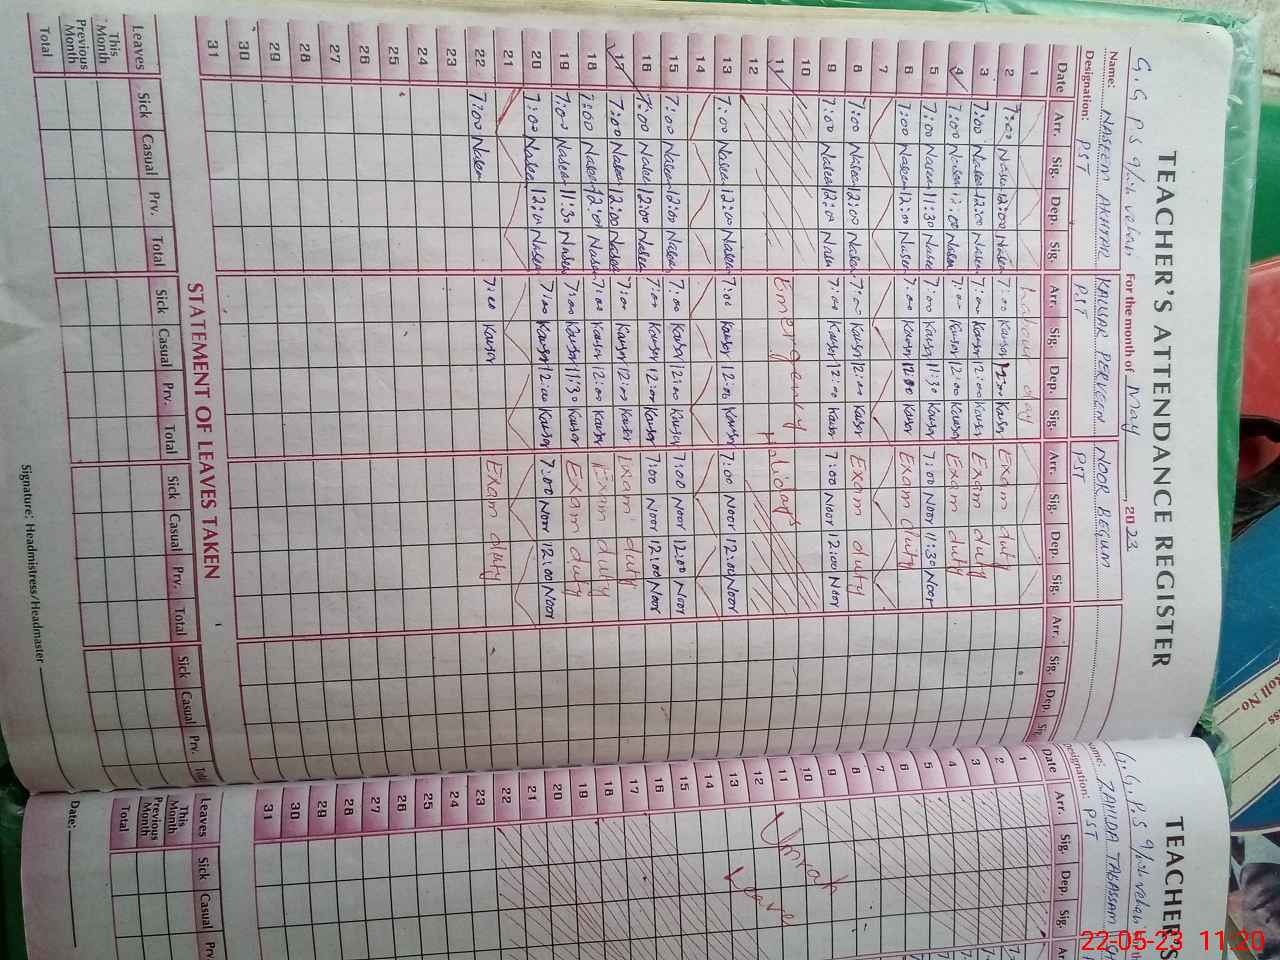 TEACHER'S ATTENDANCE REGISTER
G.G P S For the month of May, 2023
Name: NASEEM AKHTAR KAUSAR PERVEEN NOOR BEGUM
Designation: PST PST PST
Date Arr. Sig. Dep. Sig. Arr. Sig. Dep. Sig. Arr. Sig. Dep. Sig. Arr. Sig. Dep. Sig.
1 Labour day
2 7:00 Naseem 12:00 Naseem 7:00 Kausar 12:00 Kausar Exam duty
3 7:00 Naseem 12:00 Naseem 7:00 Kausar 12:00 Kausar Exam duty
4 7:00 Naseem 12:00 Naseem 7:00 Kausar 12:00 Kausar Exam duty
5 7:00 Naseem 11:30 Naseem 7:00 Kausar 11:30 Kausar 7:00 Noor 11:30 Noor
6 7:00 Naseem 12:00 Naseem 7:00 Kausar 12:00 Kausar Exam duty
7
8 7:00 Naseem 12:00 Naseem 7:00 Kausar 12:00 Kausar Exam duty
9 7:00 Naseem 12:00 Naseem 7:00 Kausar 12:00 Kausar 7:00 Noor 12:00 Noor
10
11 Emergency Holidays
12
13 7:00 Naseem 12:00 Naseem 7:00 Kausar 12:00 Kausar 7:00 Noor 12:00 Noor
14
15 7:00 Naseem 12:00 Naseem 7:00 Kausar 12:00 Kausar 7:00 Noor 12:00 Noor
16 7:00 Naseem 12:00 Naseem 7:00 Kausar 12:00 Kausar 7:00 Noor 12:00 Noor
17 7:00 Naseem 12:00 Naseem 7:00 Kausar 12:00 Kausar Exam duty
18 7:00 Naseem 12:00 Naseem 7:00 Kausar 12:00 Kausar Exam duty
19 7:00 Naseem 11:30 Naseem 7:00 Kausar 11:30 Kausar Exam duty
20 7:00 Naseem 12:00 Naseem 7:00 Kausar 12:00 Kausar 7:00 Noor 12:00 Noor
21
22 7:00 Naseem 7:00 Kausar Exam duty
23
24
25
26
27
28
29
30
31
STATEMENT OF LEAVES TAKEN
Leaves Sick Casual Prv. Total Sick Casual Prv. Total Sick Casual Prv. Total Sick Casual Prv.
This Month
Previous Month
Total
Signature: Headmistress/Headmaster
TEACHER'S
G.G.P.S
Name: ZAHIDA TABASSAM
Designation: PST
Date Arr. Sig. Dep. Sig.
1
2
3
4
5
6
7
8
9
10
11
12
13
14
15
16
17
18
19
20
21
22
23
24
25
26
27
28
29
30
31
Umrah
Leave
Leaves Sick Casual Prv.
This Month
Previous Month
Total
Date:
Roll No
22-05-23 11:20